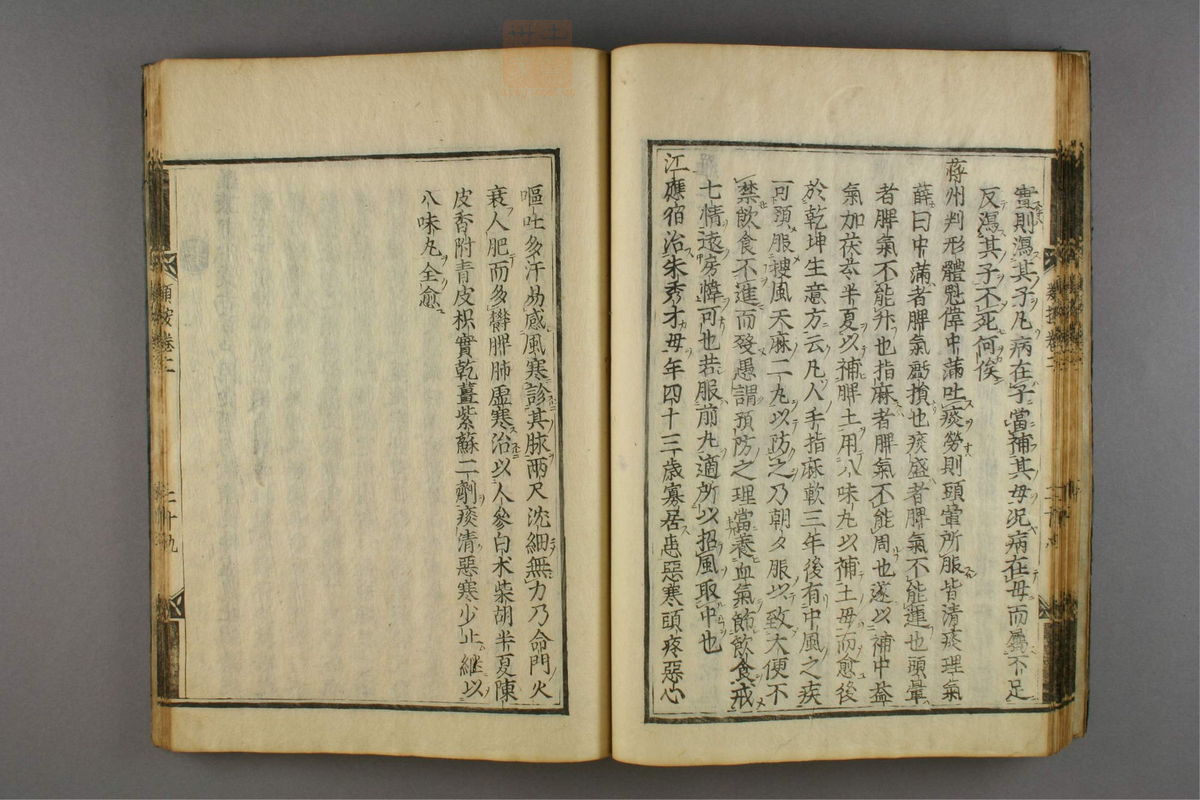 實則瀉其子凡病在子當補其母况病在母而屬不足
反瀉其子不死何俟
蔣州判形體魁偉中滿吐痰勞則頭暈所服皆清痰理氣
薛曰中滿者脾氣虧損也痰盛者脾氣不能運也頭暈
者脾氣不能升也指麻者脾氣不能周也遂以補中益
氣加茯苓半夏以補脾土用八味丸以補土母而愈後
於乾坤生意方云凡人手指麻軟三年後有中風之疾
可預服搜風天麻二丸以防之乃朝夕服以致大便不
禁飲食不進而發愚謂預防之理當養血氣節飲食戒
七情遠房幃可也若服前丸適所以招風取中也
江應宿治朱秀才母年四十三歲寡居患惡寒頭疼惡心
嘔吐多汗易感風寒診其脉兩尺沈細無力乃命門火
衰人肥而多欝脾肺虛寒治以人參白朮柴胡半夏陳
皮香附青皮枳實乾薑紫蘇二劑痰清惡寒少止継以
八味丸全愈
類按卷二
二十九